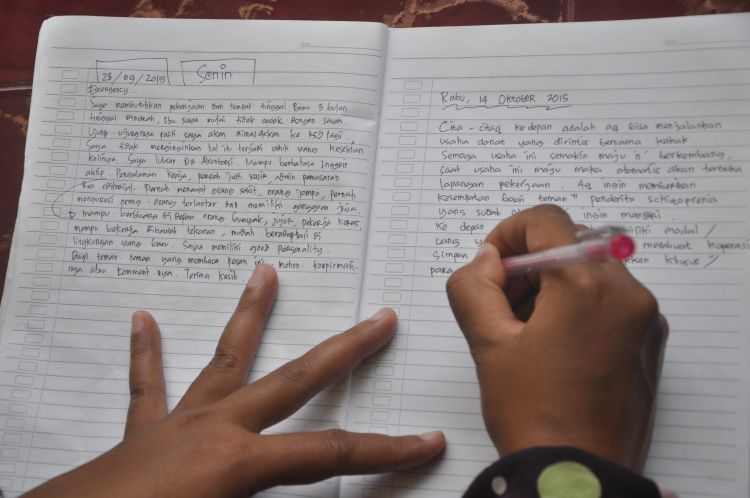 28/09/2015 Senin
Emergency...
Saya membutuhkan pekerjaan dan tempat tinggal Baru 3 bulan
tinggal dirumah, Ibu saya mulai tidak cocok dengan saya.
Ujung-ujungnya pasti saya akan dimasukkan ke RSJ lagi.
Saya tidak menginginkan hal itu terjadi untuk yang kesekian
kalinya. Saya lulusan D3 Akuntansi. Mampu berbahasa Inggris
aktip. Pengalaman kerja, pernah jadi kasir, admin pemasaran
dan editorial. Pernah merawat orang sakit, orang jompo, pernah
mengurusi orang-orang terlantar dan memiliki gangguan jiwa.
mampu berbicara di depan orang banyak, jujur, pekerja keras,
mampu bekerja dibawah tekanan, mudah beradaptasi di
lingkungan yang baru. Saya memiliki good personality.
Bagi teman-teman yang membaca pesan ini mohon konpirmasi-
nya atau komment-nya. Terima kasih.
Rabu, 14 Oktober 2015
Cita-citaq kedepan adalah aq bisa menjalankan
usaha donat yang dirintis bersama kakak.
Semoga usaha ini semakin maju 'n' berkembang,
saat usaha ini maju maka otomatis akan terbuka
lapangan pekerjaan. Aq ingin memberikan
kesempatan bagi teman" penderita schizoprenia
yang sudah ingin mandiri.
Ke depan modal/
uang membuat koperasi
simpan khusus/
para